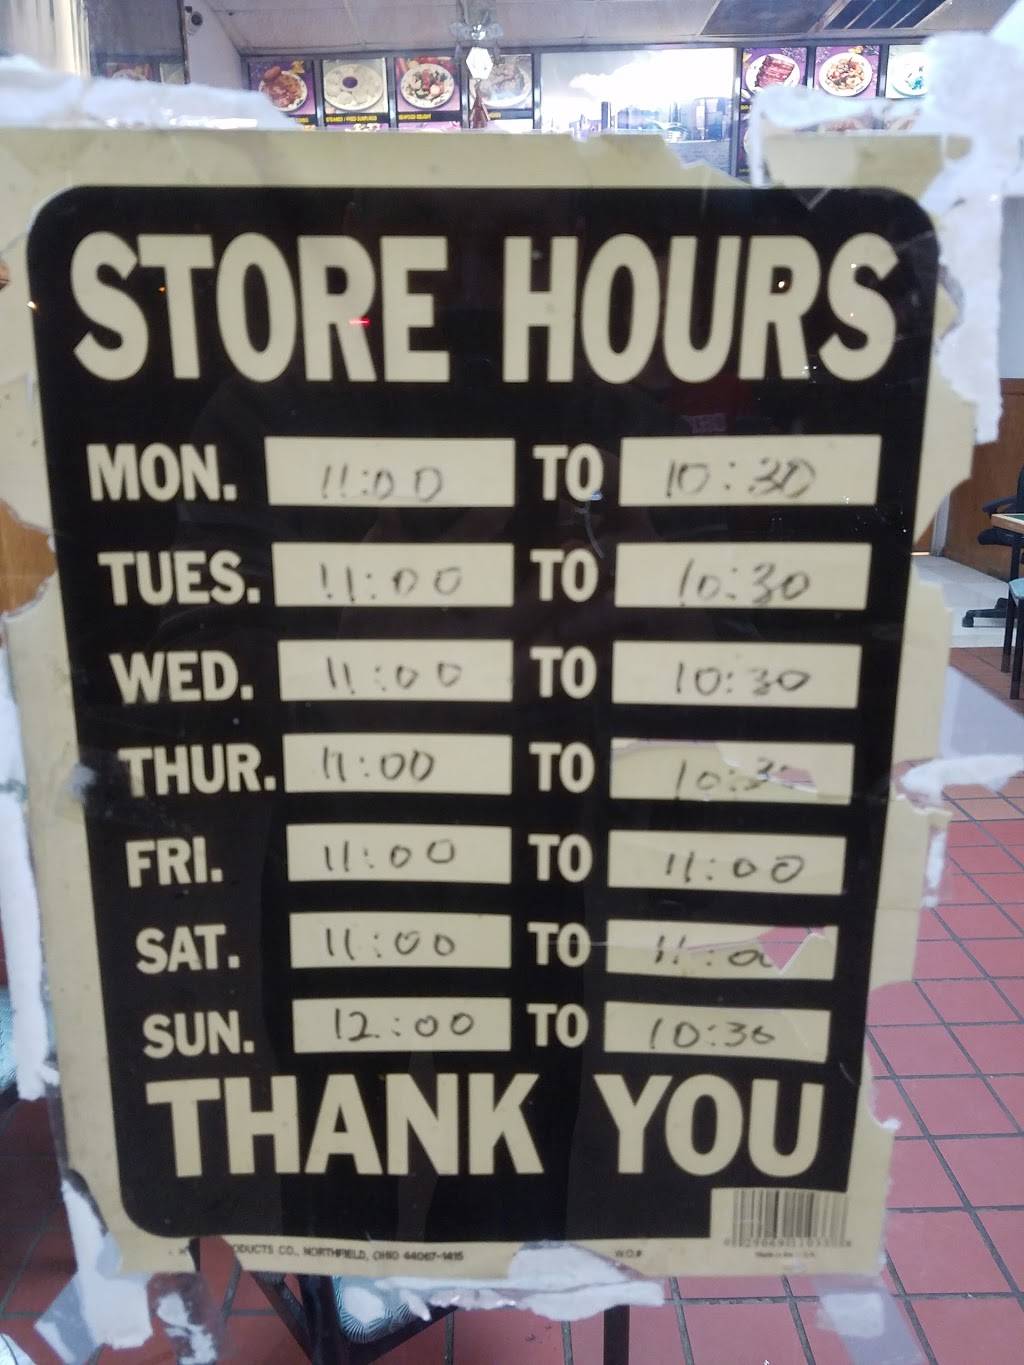 STORE HOURS
MON. 11:00 TO 10:30
TUES. 11:00 TO 10:30
WED. 11:00 TO 10:30
THUR. 11:00 TO 10:3
FRI. 11:00 TO 11:00
SAT. 11:00 TO 11:0
SUN. 12:00 TO 10:30
THANK YOU
ODUCTS CO., NORTHFIELD, OHIO 44067-1415 W.O.#